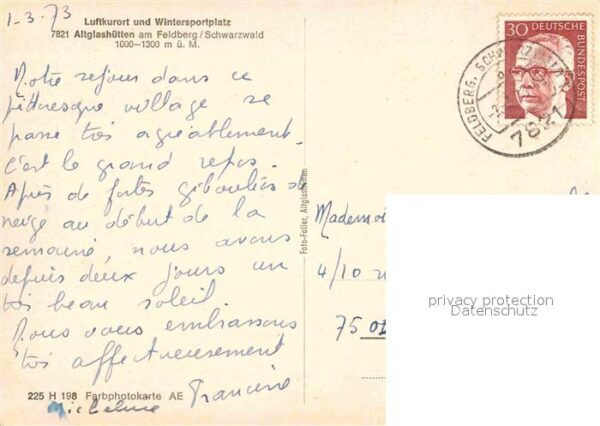 1.3.73
Luftkurort und Wintersportplatz
7821 Altglashütten am Feldberg/Schwarzwald
1000-1300 m ü. M.
Notre séjour dans ce
pittoresque village se
passe très agréablement.
c'est le grand repos.
Après de fortes giboulées de
neige au début de la
semaine, nous avons
depuis deux jours un
très beau soleil.
Nous vous embrassons
très affectueusement
Francine
Micheline
225 H 198 Farbphotokarte AE
Foto-Faller, Altglashütten
30 DEUTSCHE BUNDESPOST
FELDBERG, SCHWARZWALD
7821
Mademoi
4/10
75
privacy protection
Datenschutz